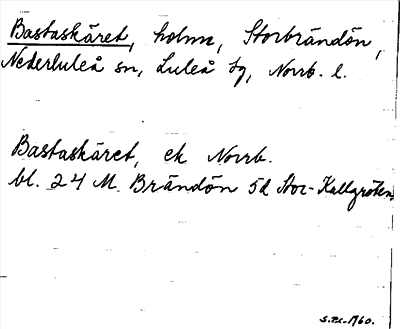 Bastaskäret, holme, Storbrändön,
Nederluleå sn, Luleå tg, Norrb. l.
Bastaskäret, ek Norrb.
bl. 24 M. Brändön 5d Stor-Kallgröten
1960.